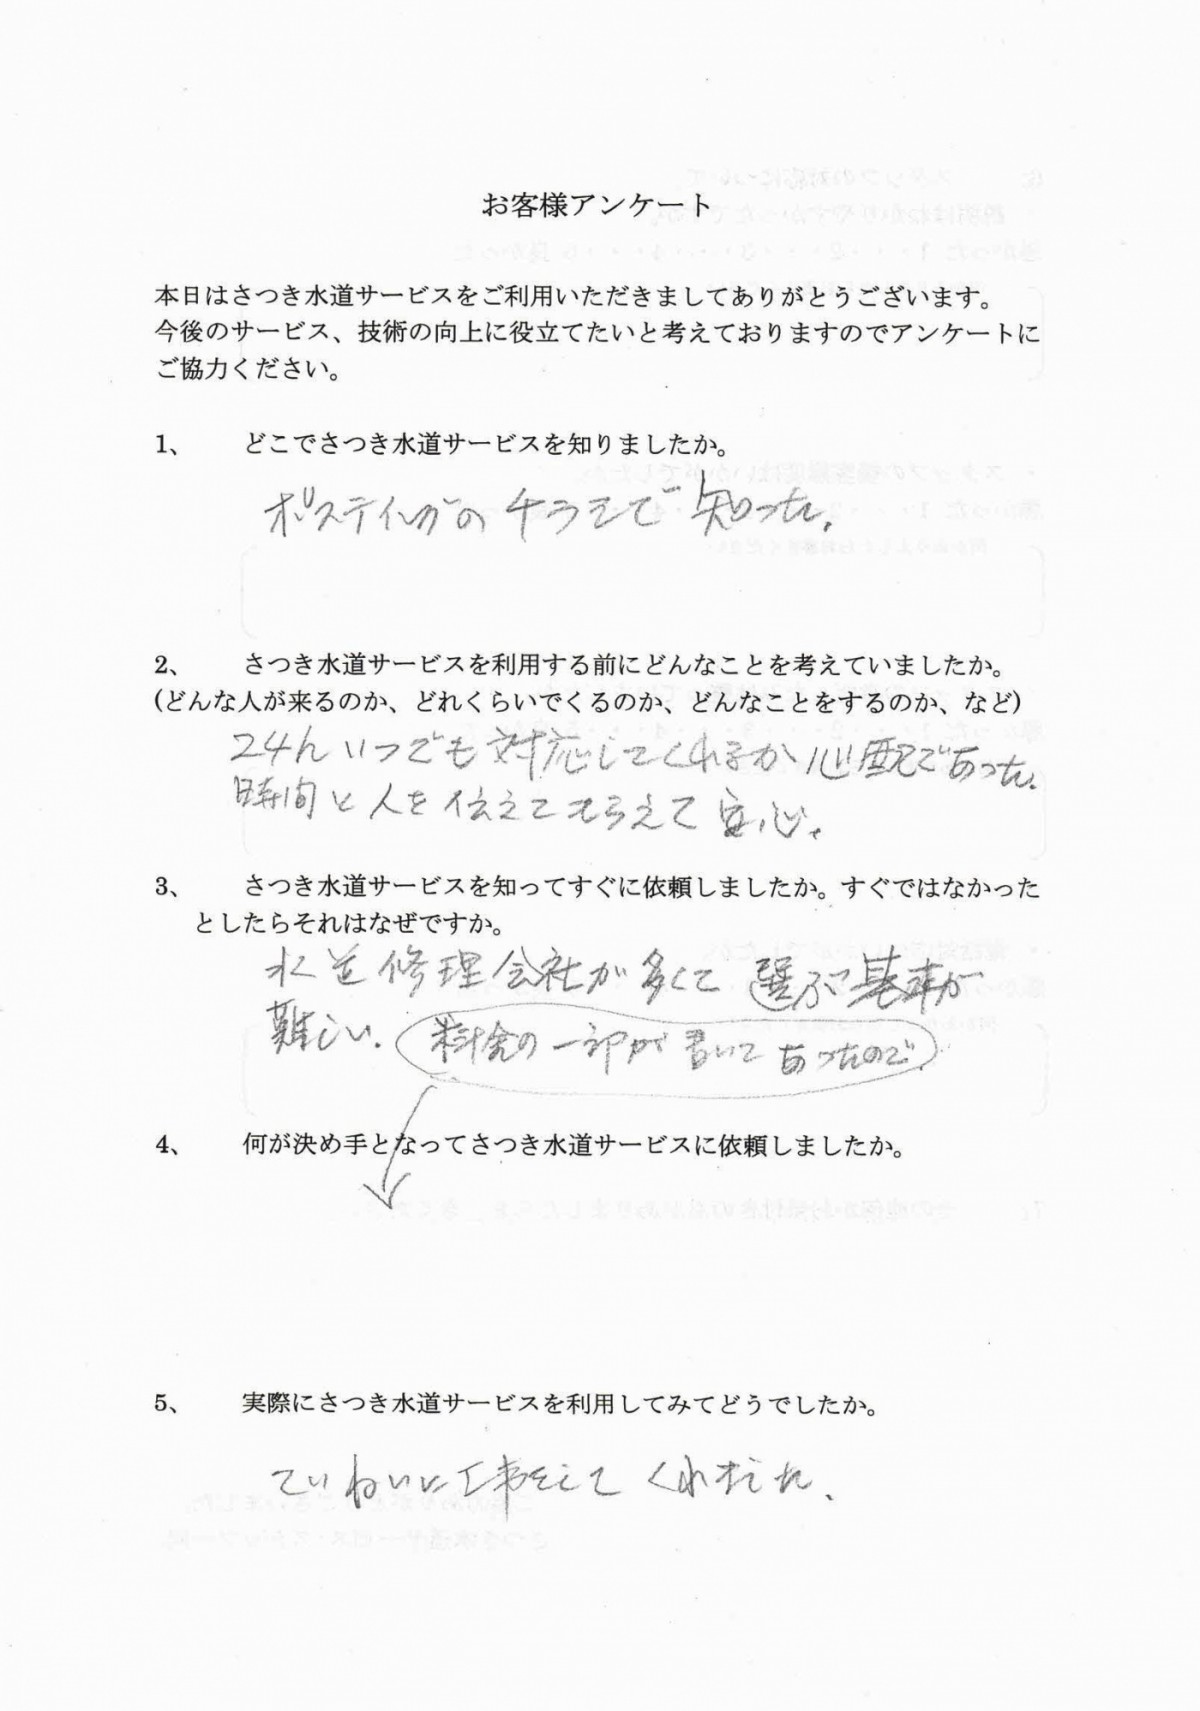 お客様アンケート
本日はさつき水道サービスをご利用いただきましてありがとうございます。
今後のサービス、技術の向上に役立てたいと考えておりますのでアンケートに
ご協力ください。
1、 どこでさつき水道サービスを知りましたか。
ポスティングの チラシで 知った。
2、 さつき水道サービスを利用する前にどんなことを考えていましたか。
(どんな人が来るのか、どれくらいでくるのか、どんなことをするのか、など)
24h いつでも 対応してくれるか 心配であった。
時間と人を伝えてもらえて 安心。
3、 さつき水道サービスを知ってすぐに依頼しましたか。すぐではなかった
としたらそれはなぜですか。
水道修理会社が多くて 選ぶ基準が
難しい。 料金の一部が書いてあったので
4、 何が決め手となってさつき水道サービスに依頼しましたか。
5、 実際にさつき水道サービスを利用してみてどうでしたか。
ていねいに工事をして くれました。